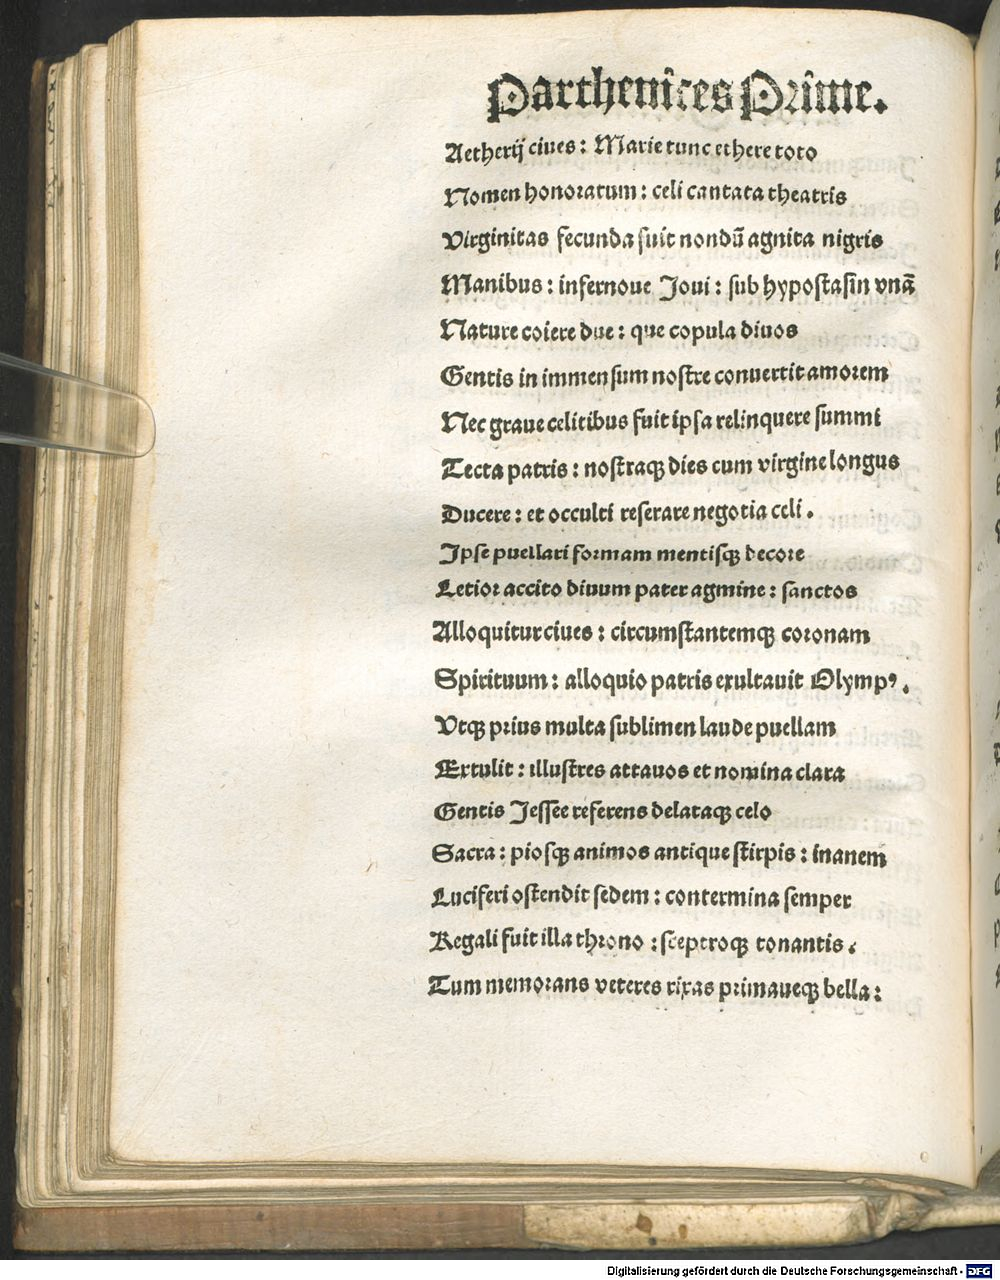 Parthenices Prime.
Aetherij ciues: Marie tunc ethere toto
Nomen honoratum: celi cantata theatris
Virginitas fecunda fuit nondū agnita nigris
Manibus: infernoue Joui: sub hypostasin vnā
Nature coiere due: que copula diuos
Gentis in immensum nostre conuertit amorem
Nec graue celitibus fuit ipsa relinquere summi
Tecta patris: nostraqꝫ dies cum virgine longus
Ducere: et occulti reserare negotia celi.
Ipse puellari formam mentisqꝫ decore
Letior accito diuum pater agmine: sanctos
Alloquitur ciues: circumstantemqꝫ coronam
Spirituum: alloquio patris exultauit Olympꝰ.
Vtqꝫ prius multa sublimen laude puellam
Extulit: illustres attauos et nomina clara
Gentis Jessee referens delataqꝫ celo
Sacra: piosqꝫ animos antique stirpis: inanem
Luciferi ostendit sedem: contermina semper
Regali fuit illa throno: sceptroqꝫ tonantis.
Tum memorans veteres rixas primaueqꝫ bella:
Digitalisierung gefördert durch die Deutsche Forschungsgemeinschaft - DFG